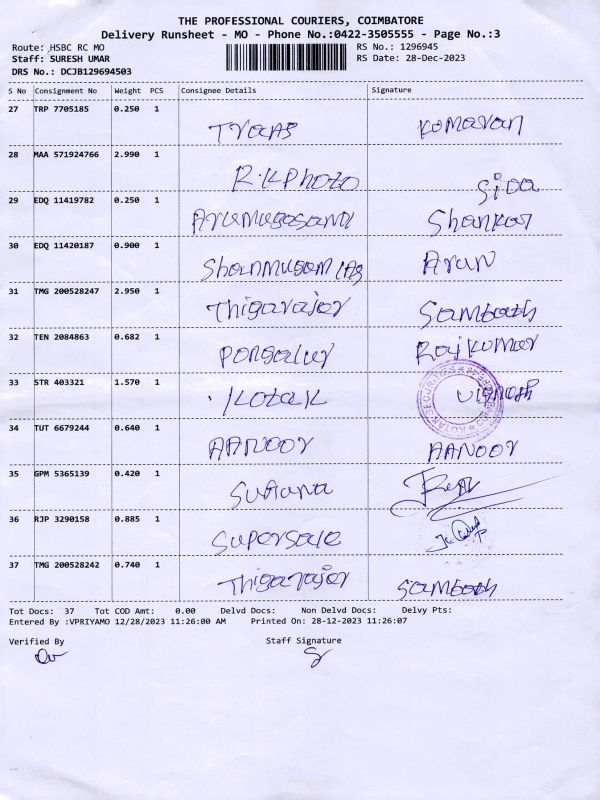 THE PROFESSIONAL COURIERS, COIMBATORE
Delivery Runsheet - MO - Phone No.:0422-3505555 - Page No.:3
Route: HSBC RC MO RS No.: 1296945
Staff: SURESH UMAR RS Date: 28-Dec-2023
DRS No.: DCJB129694503
S No Consignment No Weight PCS Consignee Details Signature
27 TRP 7705185 0.250 1
Trans Kumaran
28 MAA 571924766 2.990 1
R.K Photo Siva
29 EDQ 11419782 0.250 1
Arumugasami Shankar
30 EDQ 11420187 0.900 1
Shanmugam IAS Arun
31 TMG 200528247 2.950 1
Thigarajar Sambath
32 TEN 2084863 0.682 1
Pongalur Rajkumar
33 STR 403321 1.570 1
Kotak Vignesh
KOTAK SECURITIES
34 TUT 6679244 0.640 1
AANOOR AANOOR
35 GPM 5365139 0.420 1
Suguna
36 RJP 3290158 0.885 1
Supersale
37 TMG 200528242 0.740 1
Thigarajar Sambath
Tot Docs: 37 Tot COD Amt: 0.00 Delvd Docs: Non Delvd Docs: Delvy Pts:
Entered By :VPRIYAMO 12/28/2023 11:26:00 AM Printed On: 28-12-2023 11:26:07
Verified By Staff Signature